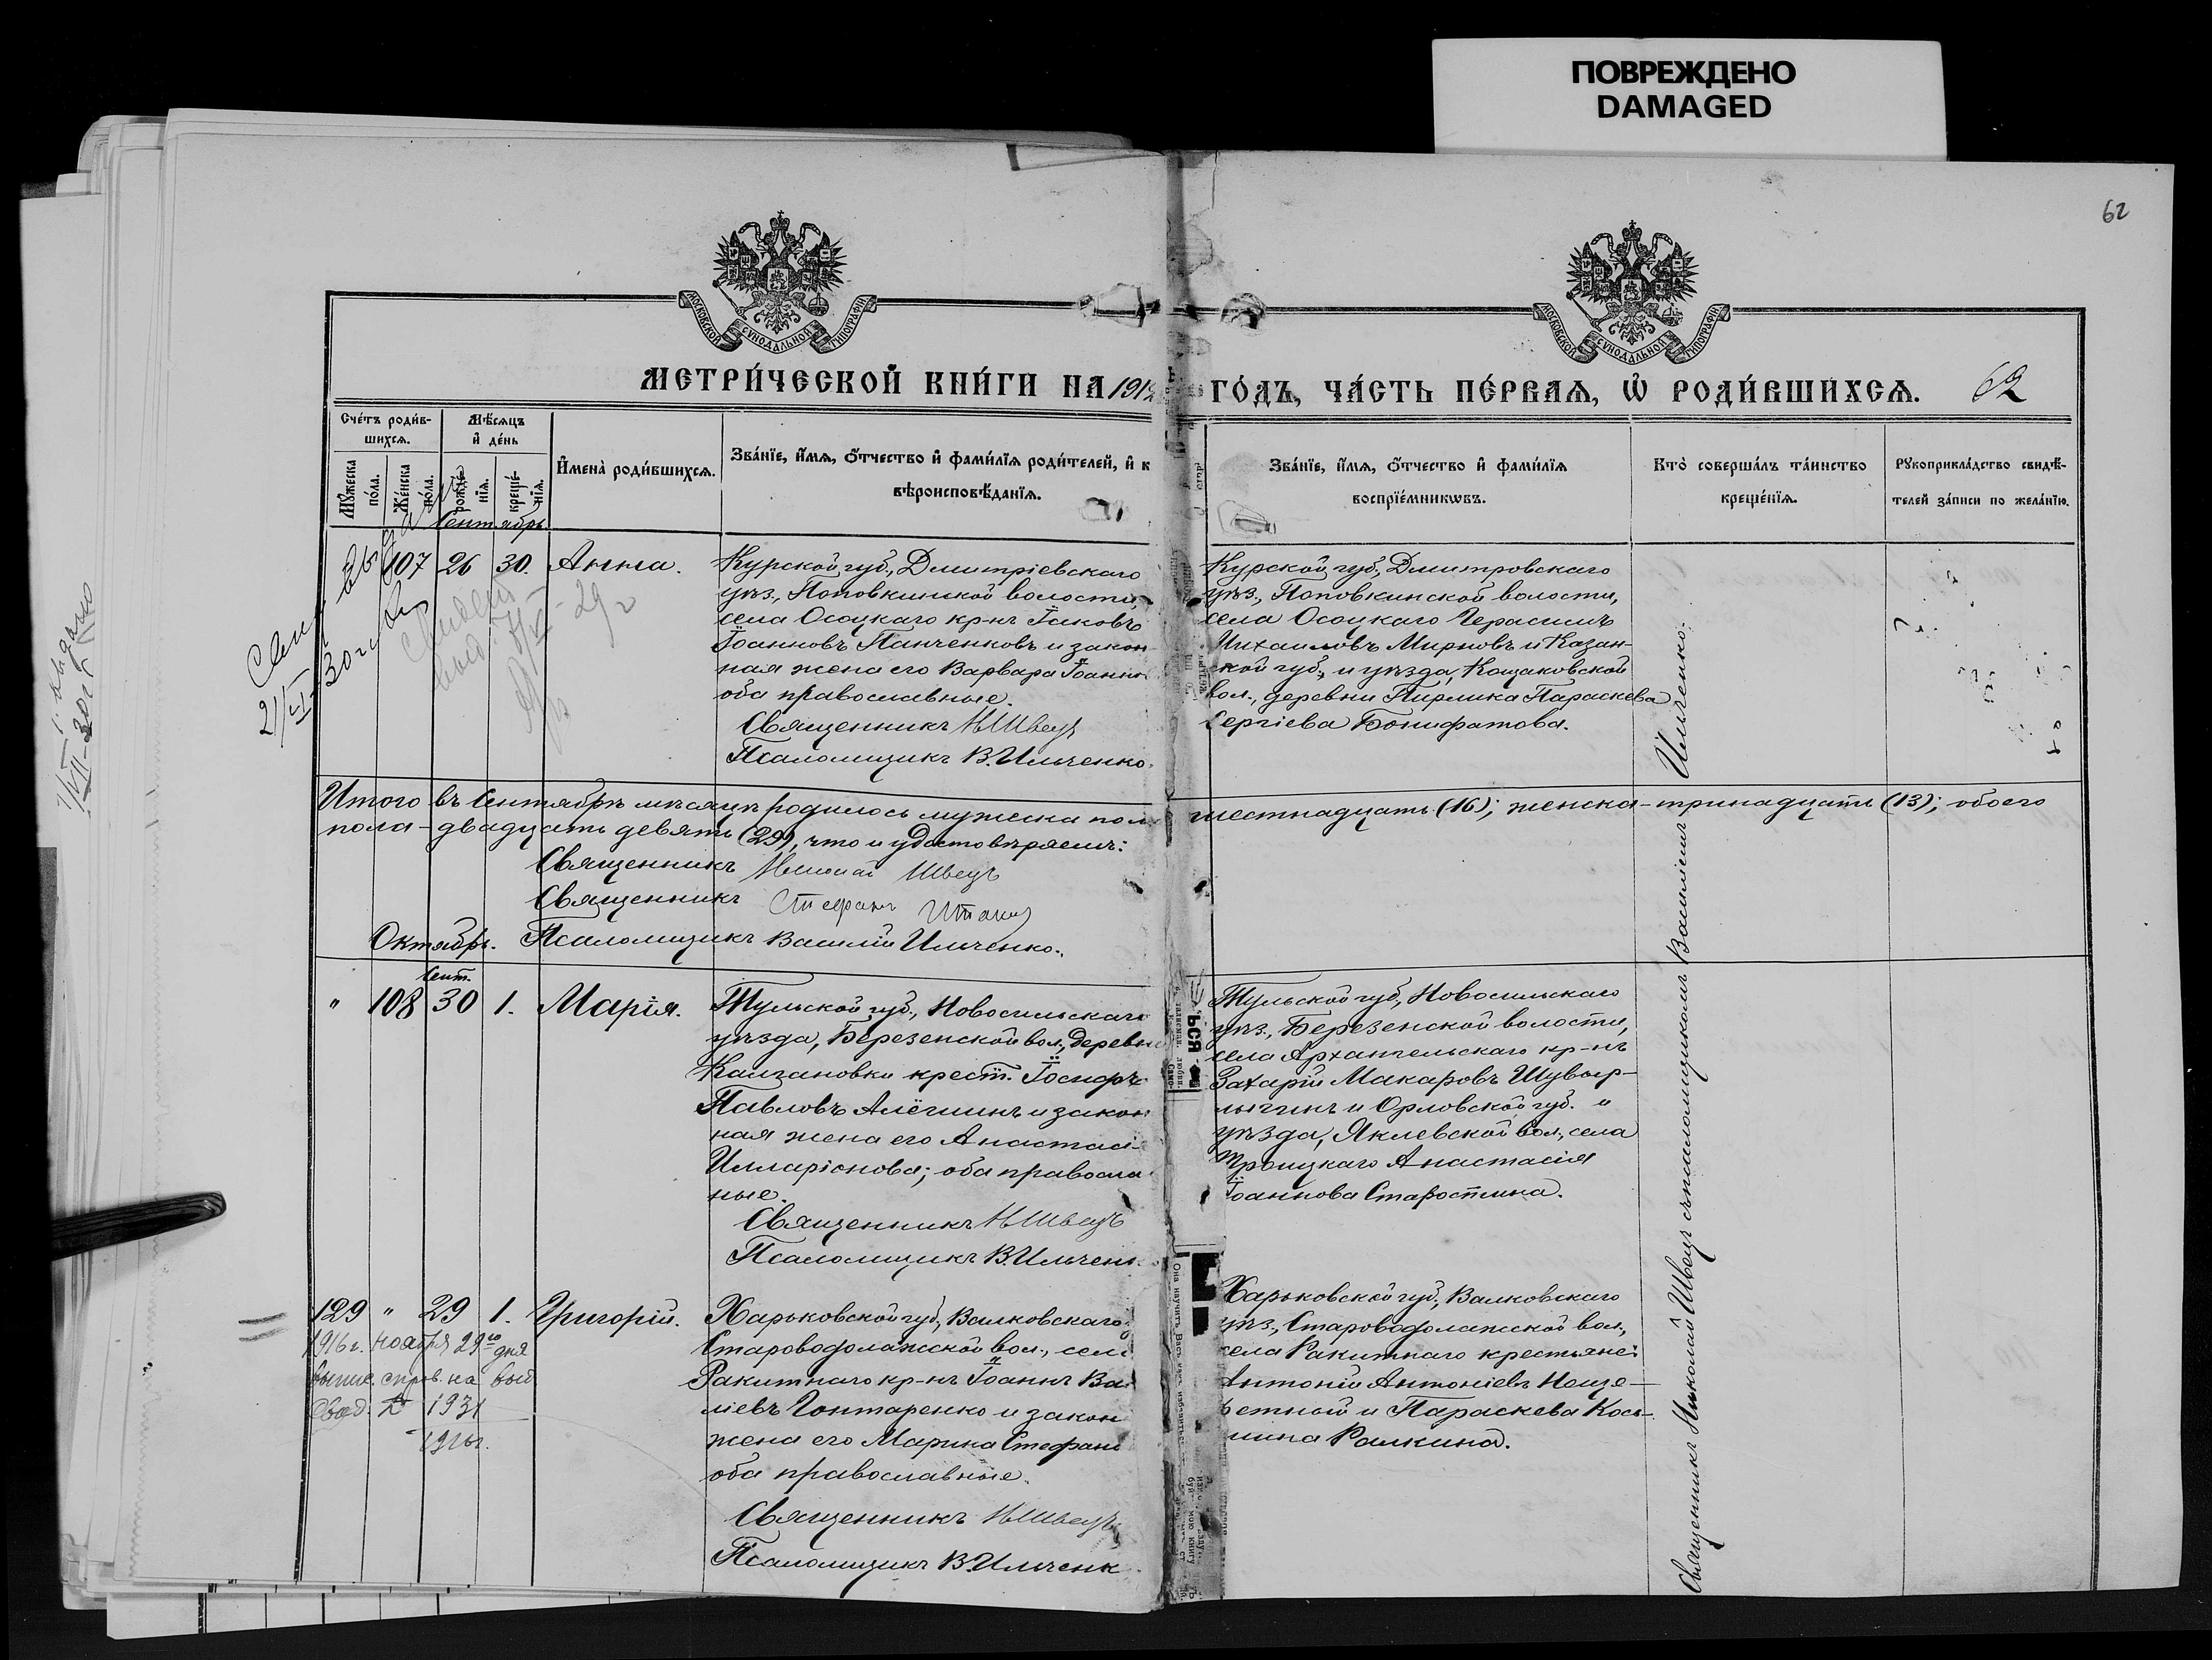 ПОВРЕЖДЕНО
DAMAGED
62
МОСКОВСКОЙ СѴНОДАЛЬНОЙ ТИПОГРАФІИ
МОСКОВСКОЙ СѴНОДАЛЬНОЙ ТИПОГРАФІИ
МЕТРИ́ЧЕСКОЙ КНИ́ГИ НА 191
ГО́ДЪ, ЧА́СТЬ ПЕ́РВАѦ, Ѡ РОДИ́ВШИХСѦ. 62
Сче́тъ роди́в-
шихсѧ.
Мѣ́сѧцъ
и де́нь
Мꙋ́жеска
по́ла.
Же́нска
по́ла.
рожде́-
нїѧ.
креще́-
нїѧ.
Имена̀ роди́вшихсѧ.
Зва́нїе, и́мѧ, о́тчество и фами́лїѧ роди́телей, и к
вѣроисповѣ́данїѧ.
Зва́нїе, и́мѧ, о́тчество и фами́лїѧ
воспрїе́мникѡвъ.
Кто̀ соверша́лъ та́инство
креще́нїѧ.
Рꙋкоприкла́дство свидѣ́-
телей за́писи по жела́нїю.
Сентябрь
107 26 30. Анна.
Курской губ., Дмитріевскаго
уѣз., Поповкинской волости,
села Осоцкаго кр-нъ Іаковъ
Іоанновъ Панченковъ и закон-
ная жена его Варвара Іоанно
оба православные.
Священникъ Н Швецъ
Псаломщикъ В. Ильченко.
Курской губ., Дмитровскаго
уѣз., Поповкинской волости,
села Осоцкаго Герасимъ
Михаиловъ Мирновъ и Казан-
ской губ., и уѣзда, Кощаковской
вол., деревни Пирлика Параскева
Сергіева Бонифатова.
Итого въ Сентябрѣ мѣсяцѣ родилось мужеска пол
шестнадцать (16); женска-тринадцать (13); обоего
пола-двадцать девять (29), что и удостовѣряемъ:
Священникъ Николай Швецъ
Священникъ Стефанъ
Псаломщикъ Василій Ильченко.
Октябрь.
Сент.
" 108 30 1. Марія.
Тульской губ., Новосильскаго
уѣзда, Березенской вол., дерев
Калгановки крест. Іосифъ
Павловъ Алёшинъ и закон
ная жена его Анастасі
Илларіонова; оба правосла
ные.
Священникъ Н Швецъ
Псаломщикъ В. Ильчен
Тульской губ., Новосильскаго
уѣз., Березенской волости,
села Архангельскаго кр-нъ
Захарій Макаровъ Шувыр-
лыгинъ и Орловской губ. и
уѣзда, Яклевской вол., села
Троицкаго Анастасія
Іоаннова Старостина.
129 " 29 1. Григорій.
1916 г. ноября 29го дня
выше. спров. на выд
Свод. № 1931
1916 г.
Харьковской губ., Валковскаго
Староводолажской вол., сел
Ракитнаго кр-нъ Іоаннъ Ва
ліевъ Гонтаренко и закон
жена его Марина Стефан
оба православные.
Священникъ Н Швецъ
Псаломщикъ В. Ильченк
Харьковской губ., Валковскаго
уѣз., Староводолажской вол.,
села Ракитнаго крестьяне:
Антоній Антоніевъ Неще-
ретной и Параскева Кось-
мина Ралкина.
Священникъ Николай Швецъ съ псаломщикомъ Василіемъ Ильченко.